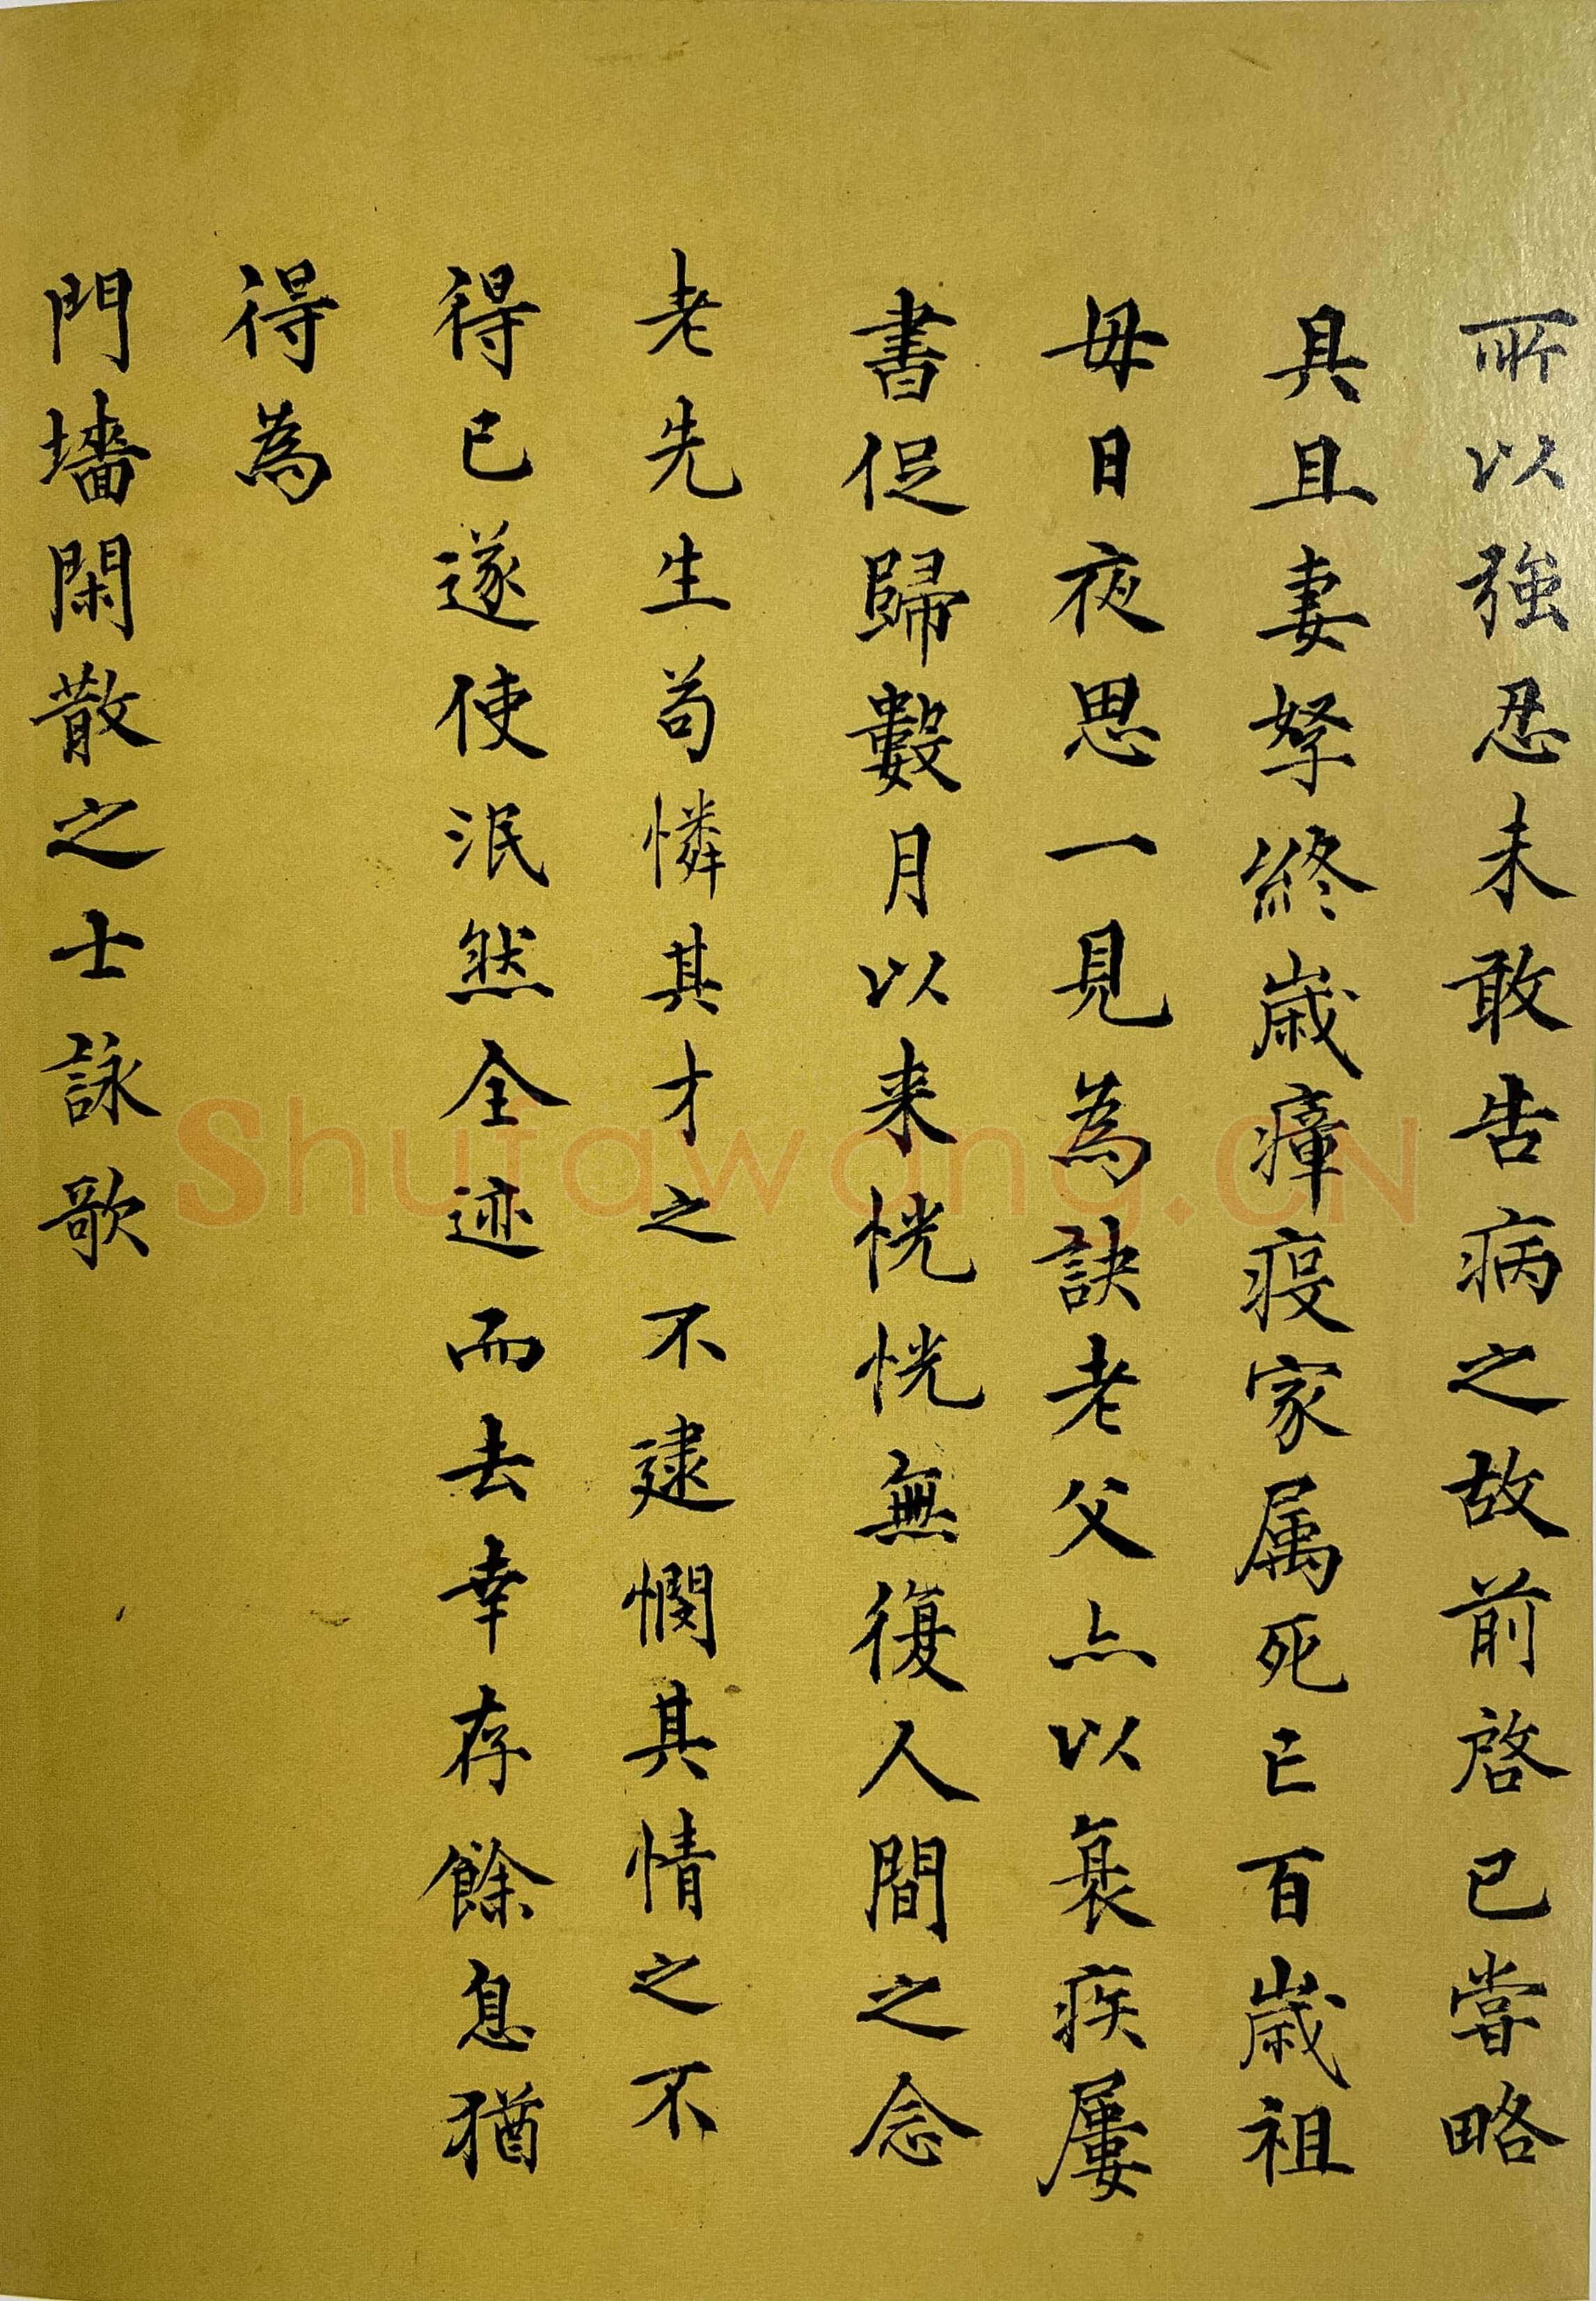 所以強忍未敢告病之故前啓已嘗略
具且妻孥終歲瘴疫家属死亡百歲祖
母日夜思一見為訣老父亦以衰疾屢
書促歸數月以来恍恍無復人間之念
老先生苟憐其才之不逮憫其情之不
得已遂使泯然全迹而去幸存餘息猶
得為
門墻閑散之士詠歌
Shufawang.CN